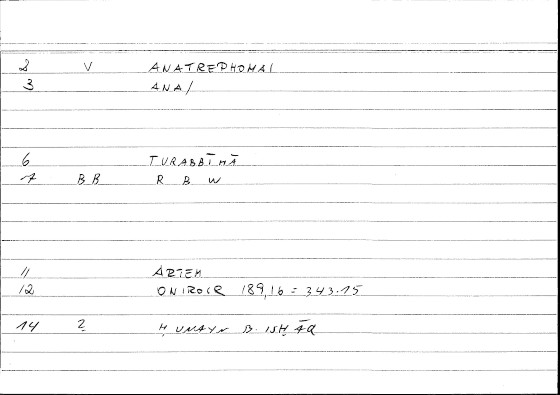 2 V ANATREPHOMAI
3 ANA/
6 TURABBĪHĀ
7 BB R B W
11 ARTEM
12 ONIROCR 189,16 = 343.15
14 2 ḤUNAYN B. ISḤĀQ